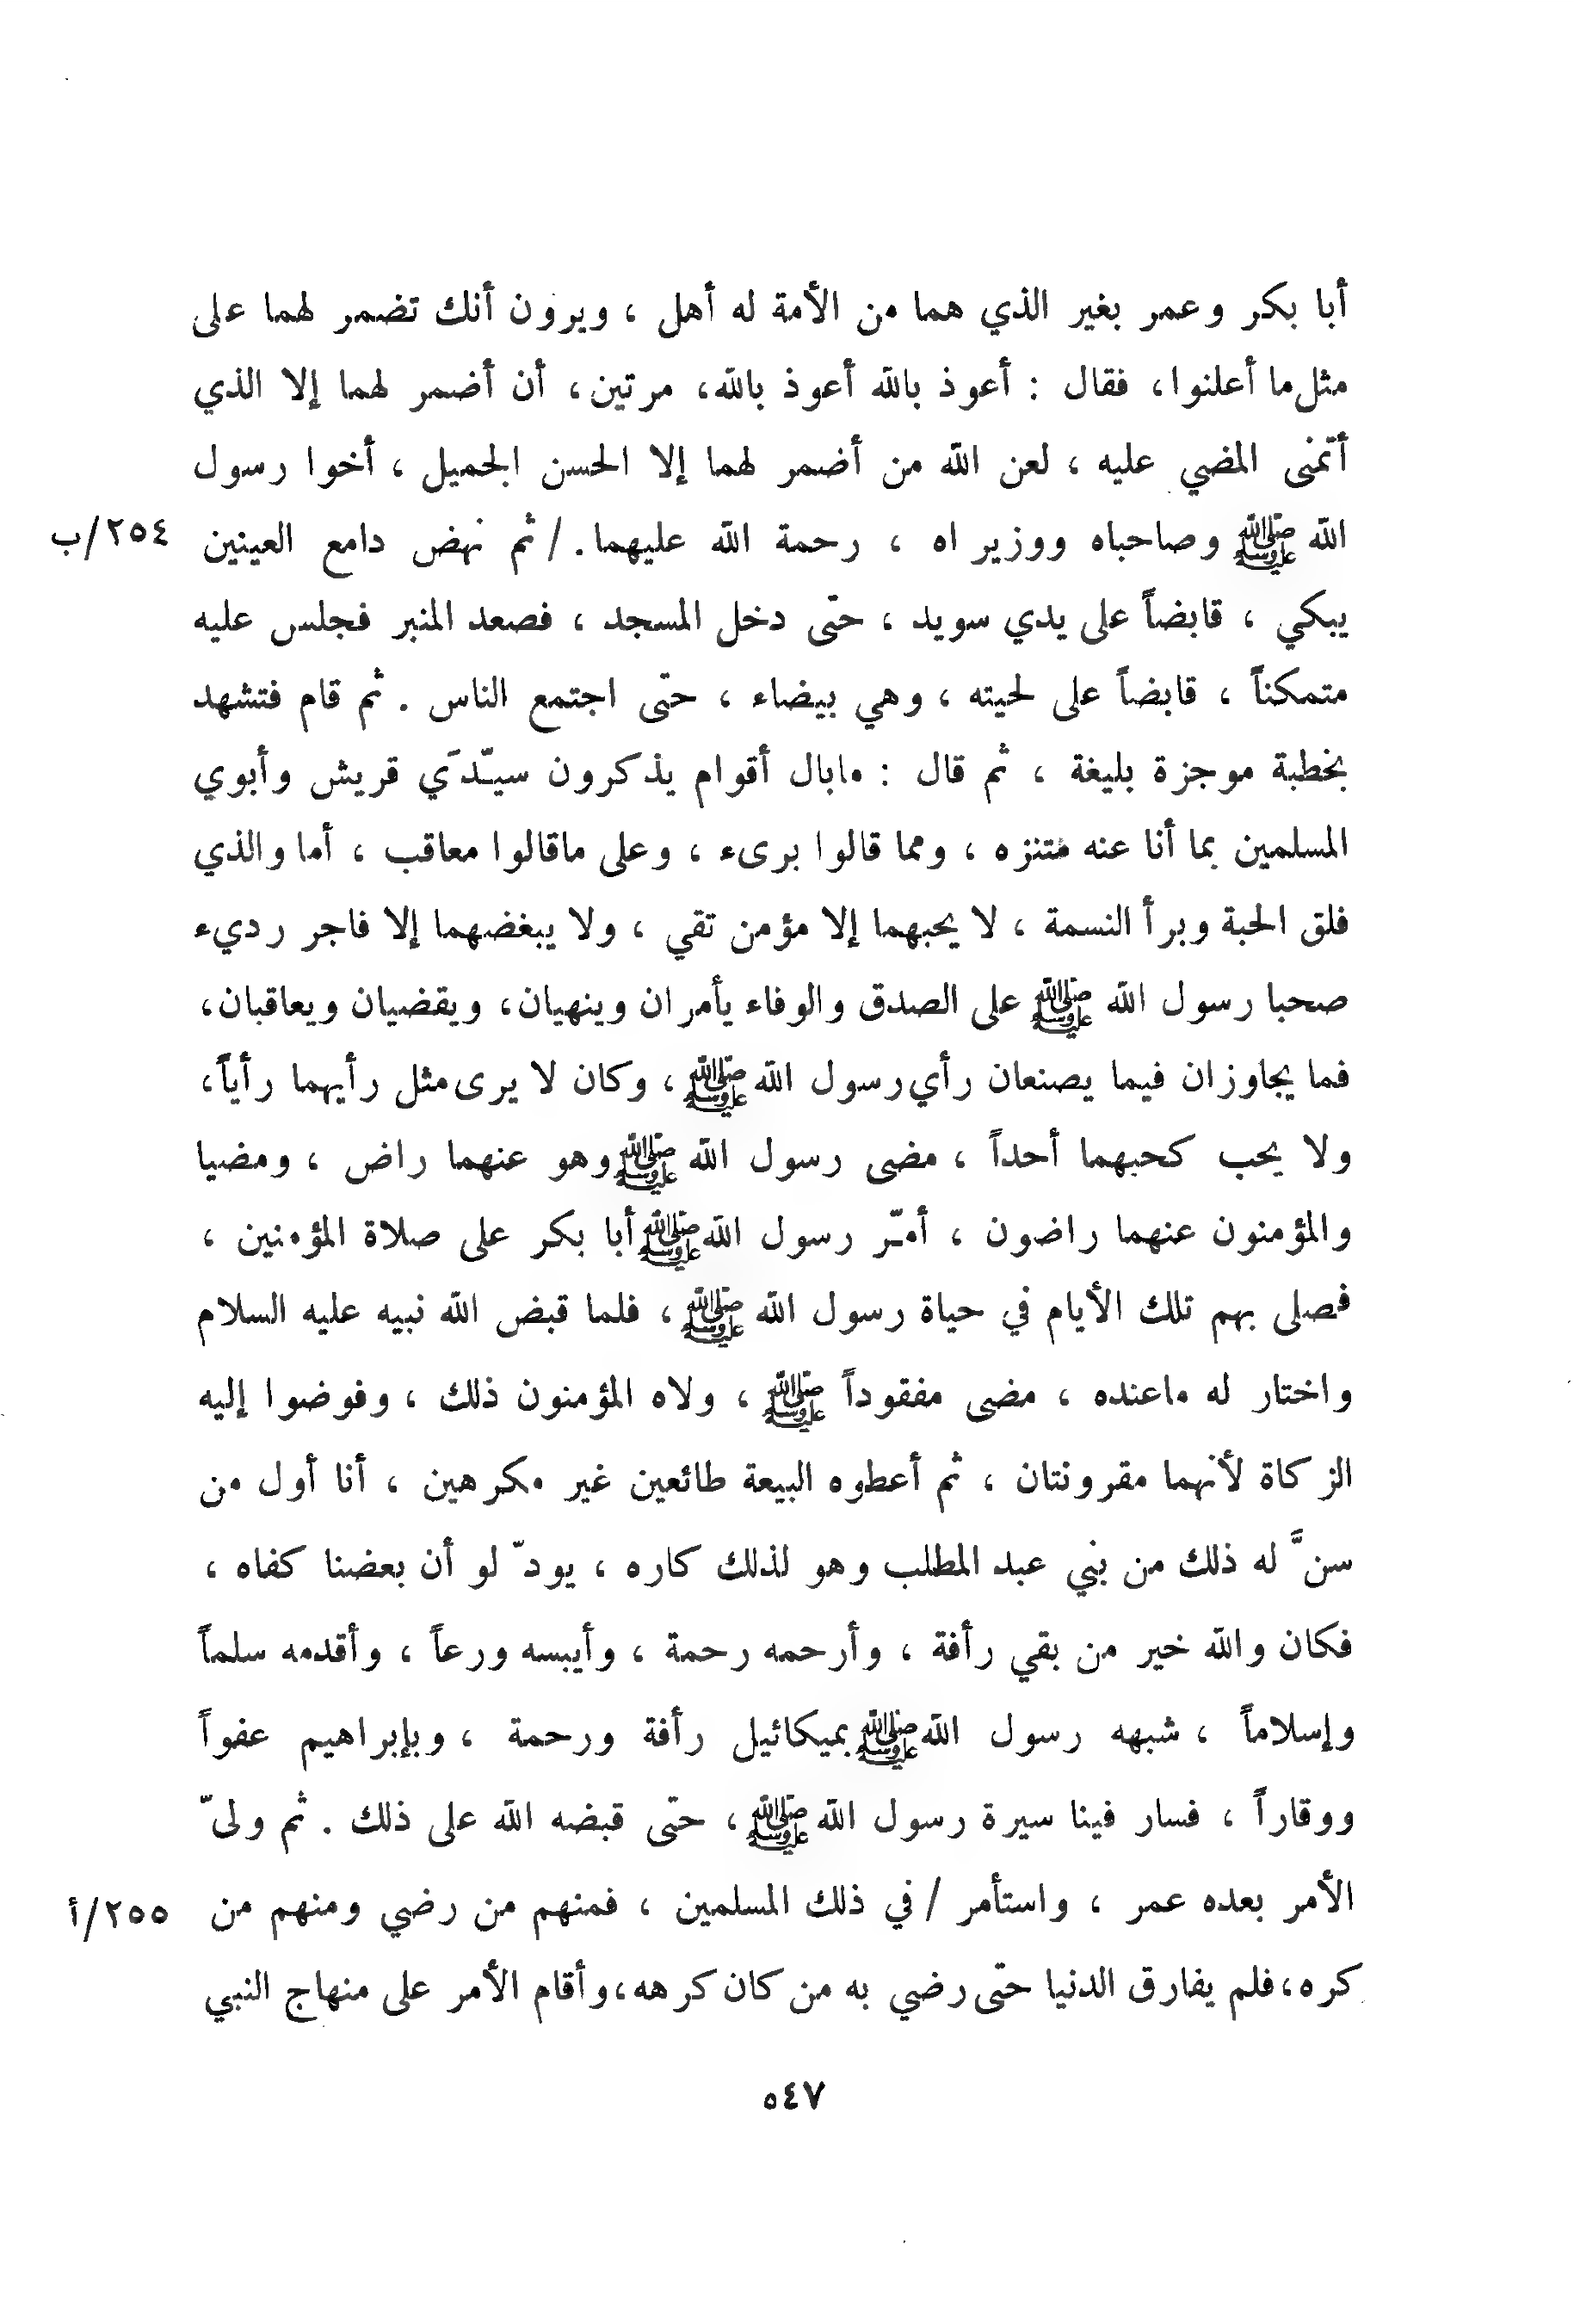 أبا بكر وعمر بغير الذي هما من الأمة له أهل ، ويرون أنك تضمر لهما على
مثل ما أعلنوا، فقال : أعوذ بالله أعوذ بالله، مرتين، أن أضمر لهما إلا الذي
أتمنى المضي عليه ، لعن الله من أضمر لهما إلا الحسن الجميل ، أخوا رسول
الله ﷺ وصاحباه ووزيراه ، رحمة الله عليهما. / ثم نهض دامع العينين ٢٥٤/ب
يبكي ، قابضاً على يدي سويد ، حتى دخل المسجد ، فصعد المنبر فجلس عليه
متمكناً ، قابضاً على لحيته ، وهي بيضاء ، حتى اجتمع الناس . ثم قام فتشهد
بخطبة موجزة بليغة ، ثم قال : مابال أقوام يذكرون سيّدَي قريش وأبوي
المسلمين بما أنا عنه متنزه ، ومما قالوا برىء ، وعلى ماقالوا معاقب ، أما والذي
فلق الحبة وبرأ النسمة ، لا يحبهما إلا مؤمن تقي ، ولا يبغضهما إلا فاجر رديء
صحبا رسول الله ﷺ على الصدق والوفاء يأمران وينهيان، ويقضيان ويعاقبان،
فما يجاوزان فيما يصنعان رأي رسول الله ﷺ ، وكان لا يرى مثل رأيهما رأياً،
ولا يحب كحبهما أحداً ، مضى رسول الله ﷺ وهو عنهما راض ، ومضيا
والمؤمنون عنهما راضون ، أمّر رسول الله ﷺ أبا بكر على صلاة المؤمنين ،
فصلى بهم تلك الأيام في حياة رسول الله ﷺ ، فلما قبض الله نبيه عليه السلام
واختار له ماعنده ، مضى مفقوداً ﷺ ، ولاه المؤمنون ذلك ، وفوضوا إليه
الزكاة لأنهما مقرونتان ، ثم أعطوه البيعة طائعين غير مكرهين ، أنا أول من
سنَّ له ذلك من بني عبد المطلب وهو لذلك كاره ، يودّ لو أن بعضنا كفاه ،
فكان والله خير من بقي رأفة ، وأرحمه رحمة ، وأيبسه ورعاً ، وأقدمه سلماً
وإسلاماً ، شبهه رسول الله ﷺ بميكائيل رأفة ورحمة ، وبإبراهيم عفواً
ووقاراً ، فسار فينا سيرة رسول الله ﷺ ، حتى قبضه الله على ذلك . ثم ولىّ
الأمر بعده عمر ، واستأمر / في ذلك المسلمين ، فمنهم من رضي ومنهم من ٢٥٥/أ
كره، فلم يفارق الدنيا حتى رضي به من كان كرهه، وأقام الأمر على منهاج النبي
٥٤٧